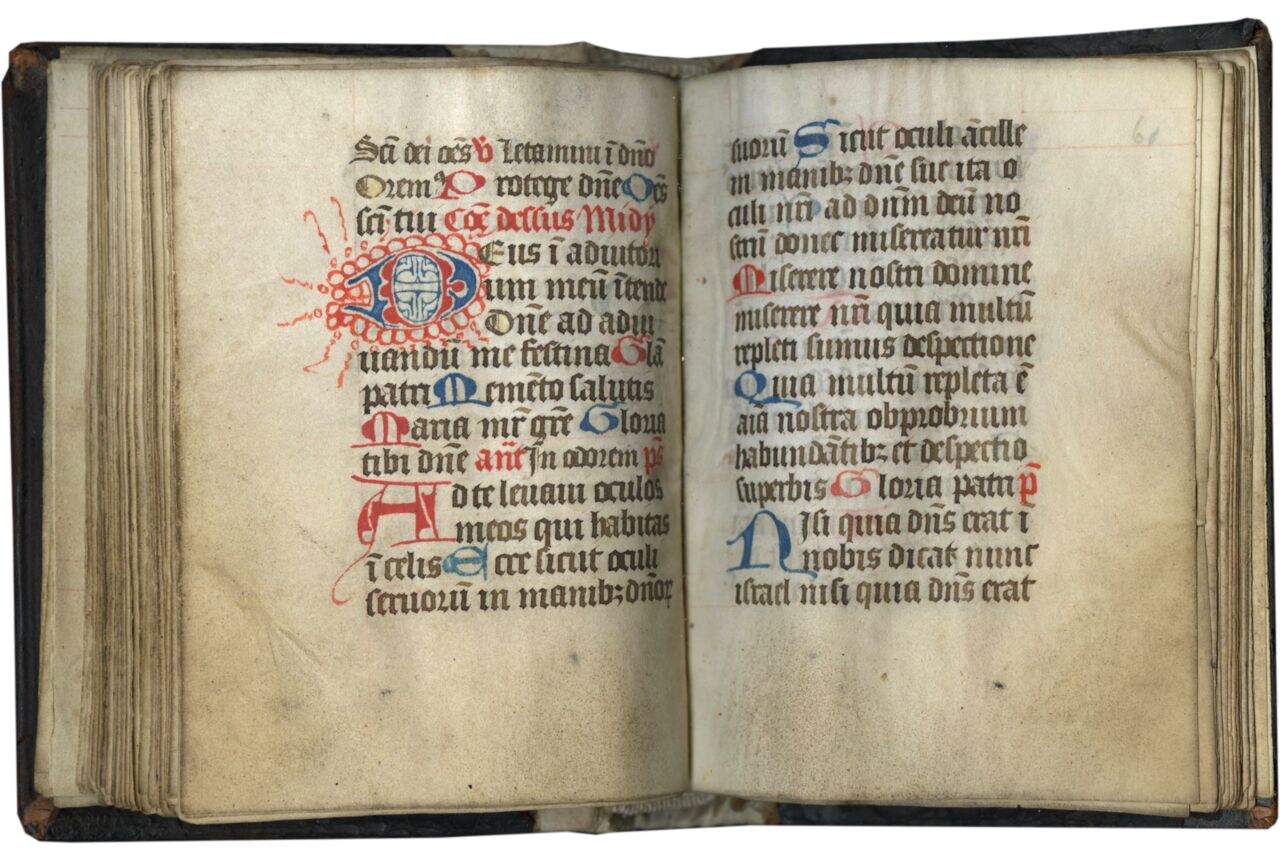 Scī dei oēs v̄ Letamini ī dn̄o
Orem⁹ Protege dn̄e Oēs
scī tui Cōe dessus Midy
Deus ī adiutori
um meū ītende
Dn̄e ad adiu
uandū me festina Glā
patri Memēto salutis
Maria mr̄ gr̄e Gloria
tibi dn̄e an̄t In odorem ps̄
Ad te leuaui oculos
meos qui habitas
ī celis Ecce sicut oculi
seruorū in manibꝫ dn̄oꝝ
60
suorū Sicut oculi ācille
in manibꝫ dn̄e sue ita o
culi nr̄i ad dn̄m deū no
strū donec misereatur nr̄i
Miserere nostri domine
miserere nr̄i quia multū
repleti sumus despectione
Quia multū repleta ē
aīa nostra obprobrium
habundātibꝫ et despectio
superbis Gloria patri p̄
Nisi quia dn̄s erat ī
nobis dicat nunc
israel nisi quia dn̄s erat